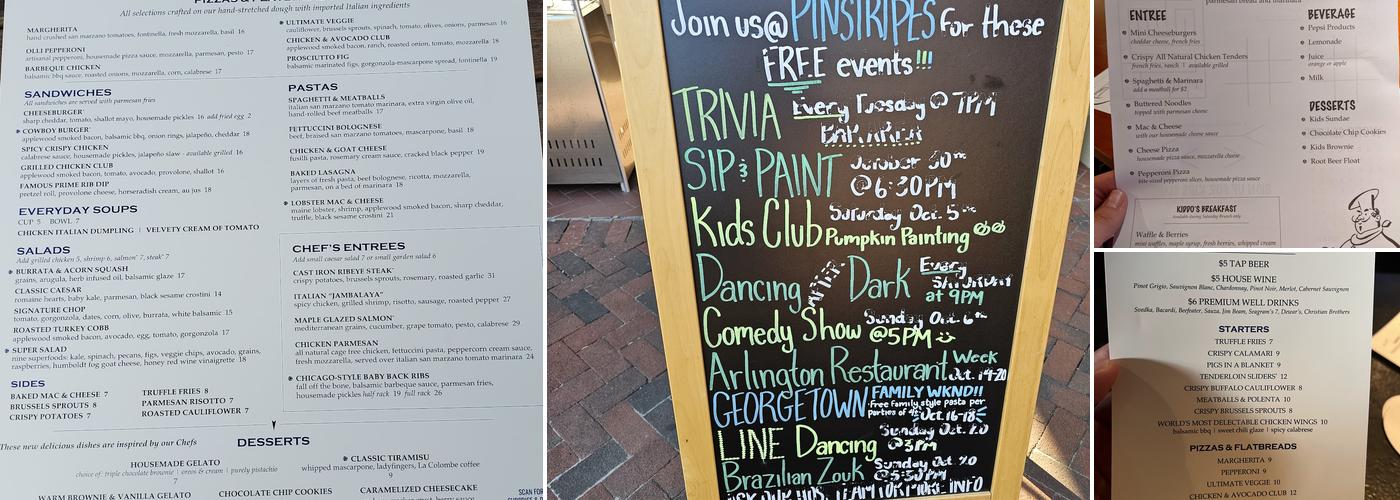 All selections crafted on our hand-stretched dough with imported Italian ingredients
MARGHERITA
hand crushed san marzano tomatoes, fontinella, fresh mozzarella, basil 16
OLLI PEPPERONI
artisanal pepperoni, housemade pizza sauce, mozzarella, parmesan, pesto 17
BARBEQUE CHICKEN
balsamic bbq sauce, roasted onions, mozzarella, corn, calabrese 17
ULTIMATE VEGGIE
cauliflower, brussels sprouts, spinach, tomato, olives, onions, parmesan 16
CHICKEN & AVOCADO CLUB
applewood smoked bacon, ranch, roasted onion, tomato, mozzarella 18
PROSCIUTTO FIG
balsamic marinated figs, gorgonzola-mascarpone spread, fontinella 19
SANDWICHES
All sandwiches are served with parmesan fries
CHEESEBURGER*
sharp cheddar, tomato, shallot mayo, housemade pickles 16 add fried egg 2
COWBOY BURGER*
applewood smoked bacon, balsamic bbq, onion rings, jalapeño, cheddar 18
SPICY CRISPY CHICKEN
calabrese sauce, housemade pickles, jalapeño slaw - available grilled 16
GRILLED CHICKEN CLUB
applewood smoked bacon, tomato, avocado, provolone, shallot 16
FAMOUS PRIME RIB DIP
pretzel roll, provolone cheese, horseradish cream, au jus 18
EVERYDAY SOUPS
CUP 5 BOWL 7
CHICKEN ITALIAN DUMPLING | VELVETY CREAM OF TOMATO
SALADS
Add grilled chicken 5, shrimp 6, salmon* 7, steak* 7
BURRATA & ACORN SQUASH
grains, arugula, herb infused oil, balsamic glaze 17
CLASSIC CAESAR
romaine hearts, baby kale, parmesan, black sesame crostini 14
SIGNATURE CHOP
tomato, gorgonzola, dates, corn, olive, burrata, white balsamic 15
ROASTED TURKEY COBB
applewood smoked bacon, avocado, egg, tomato, gorgonzola 17
SUPER SALAD
nine superfoods: kale, spinach, pecans, figs, veggie chips, avocado, grains,
raspberries, humboldt fog goat cheese, honey red wine vinaigrette 18
SIDES
BAKED MAC & CHEESE 7
BRUSSELS SPROUTS 8
CRISPY POTATOES 7
TRUFFLE FRIES 8
PARMESAN RISOTTO 7
ROASTED CAULIFLOWER 7
PASTAS
SPAGHETTI & MEATBALLS
italian san marzano tomato marinara, extra virgin olive oil,
hand-rolled beef meatballs 17
FETTUCCINI BOLOGNESE
beef, braised san marzano tomatoes, mascarpone, basil 18
CHICKEN & GOAT CHEESE
fusilli pasta, rosemary cream sauce, cracked black pepper 19
BAKED LASAGNA
layers of fresh pasta, beef bolognese, ricotta, mozzarella,
parmesan, on a bed of marinara 18
LOBSTER MAC & CHEESE
maine lobster, shrimp, applewood smoked bacon, sharp cheddar,
truffle, black sesame crostini 21
CHEF'S ENTREES
Add small caesar salad 7 or small garden salad 6
CAST IRON RIBEYE STEAK*
crispy potatoes, brussels sprouts, rosemary, roasted garlic 31
ITALIAN "JAMBALAYA"
spicy chicken, grilled shrimp, risotto, sausage, roasted pepper 27
MAPLE GLAZED SALMON*
mediterranean grains, cucumber, grape tomato, pesto, calabrese 29
CHICKEN PARMESAN
all natural cage free chicken, fettuccini pasta, peppercorn cream sauce,
fresh mozzarella, served over italian san marzano tomato marinara 24
CHICAGO-STYLE BABY BACK RIBS
fall off the bone, balsamic barbeque sauce, parmesan fries,
housemade pickles half rack 19 full rack 26
These new delicious dishes are inspired by our Chefs
DESSERTS
HOUSEMADE GELATO
choice of: triple chocolate brownie | oreos & cream | purely pistachio
7
CLASSIC TIRAMISU
whipped mascarpone, ladyfingers, La Colombe coffee
9
WARM BROWNIE & VANILLA GELATO
CHOCOLATE CHIP COOKIES
CARAMELIZED CHEESECAKE
SCAN FOR
Join us@ PINSTRIPES for these
FREE events!!!
TRIVIA Every Tuesday @ 7PM
SIP & PAINT October 30th
@6:30PM
Kids Club Saturday Oct. 5th
Pumpkin Painting
Dancing After Dark Every Saturday
at 9PM
Comedy Show Sunday Oct. 6th
@5PM
Arlington Restaurant Week
Oct. 14-20
GEORGETOWN FAMILY WKND!!
Free family style pasta per
parties of 4
Oct. 16-18
LINE Dancing Sunday Oct. 20
@3PM
Brazilian Zouk Sunday Oct. 20
@5:30PM
ENTREE
Mini Cheeseburgers
cheddar cheese, french fries
Crispy All Natural Chicken Tenders
french fries, ranch | available grilled
Spaghetti & Marinara
add a meatball for $2
Buttered Noodles
topped with parmesan cheese
Mac & Cheese
with our housemade cheese sauce
Cheese Pizza
housemade pizza sauce, mozzarella cheese
Pepperoni Pizza
bite-sized pepperoni slices, housemade pizza sauce
KIDDO'S BREAKFAST
Available during Saturday Brunch only
Waffle & Berries
mini waffles, maple syrup, fresh berries, whipped cream
BEVERAGE
Pepsi Products
Lemonade
Juice
orange or apple
Milk
DESSERTS
Kids Sundae
Chocolate Chip Cookies
Kids Brownie
Root Beer Float
$5 TAP BEER
$5 HOUSE WINE
Pinot Grigio, Sauvignon Blanc, Chardonnay, Pinot Noir, Merlot, Cabernet Sauvignon
$6 PREMIUM WELL DRINKS
Svedka, Bacardi, Beefeater, Sauza, Jim Beam, Seagram's 7, Dewar's, Christian Brothers
STARTERS
TRUFFLE FRIES 7
CRISPY CALAMARI 9
PIGS IN A BLANKET 9
TENDERLOIN SLIDERS* 12
CRISPY BUFFALO CAULIFLOWER 8
MEATBALLS & POLENTA 10
CRISPY BRUSSELS SPROUTS 8
WORLD'S MOST DELECTABLE CHICKEN WINGS 10
balsamic bbq | sweet chili glaze | spicy calabrese
PIZZAS & FLATBREADS
MARGHERITA 9
PEPPERONI 9
ULTIMATE VEGGIE 10
CHICKEN & AVOCADO CLUB 12